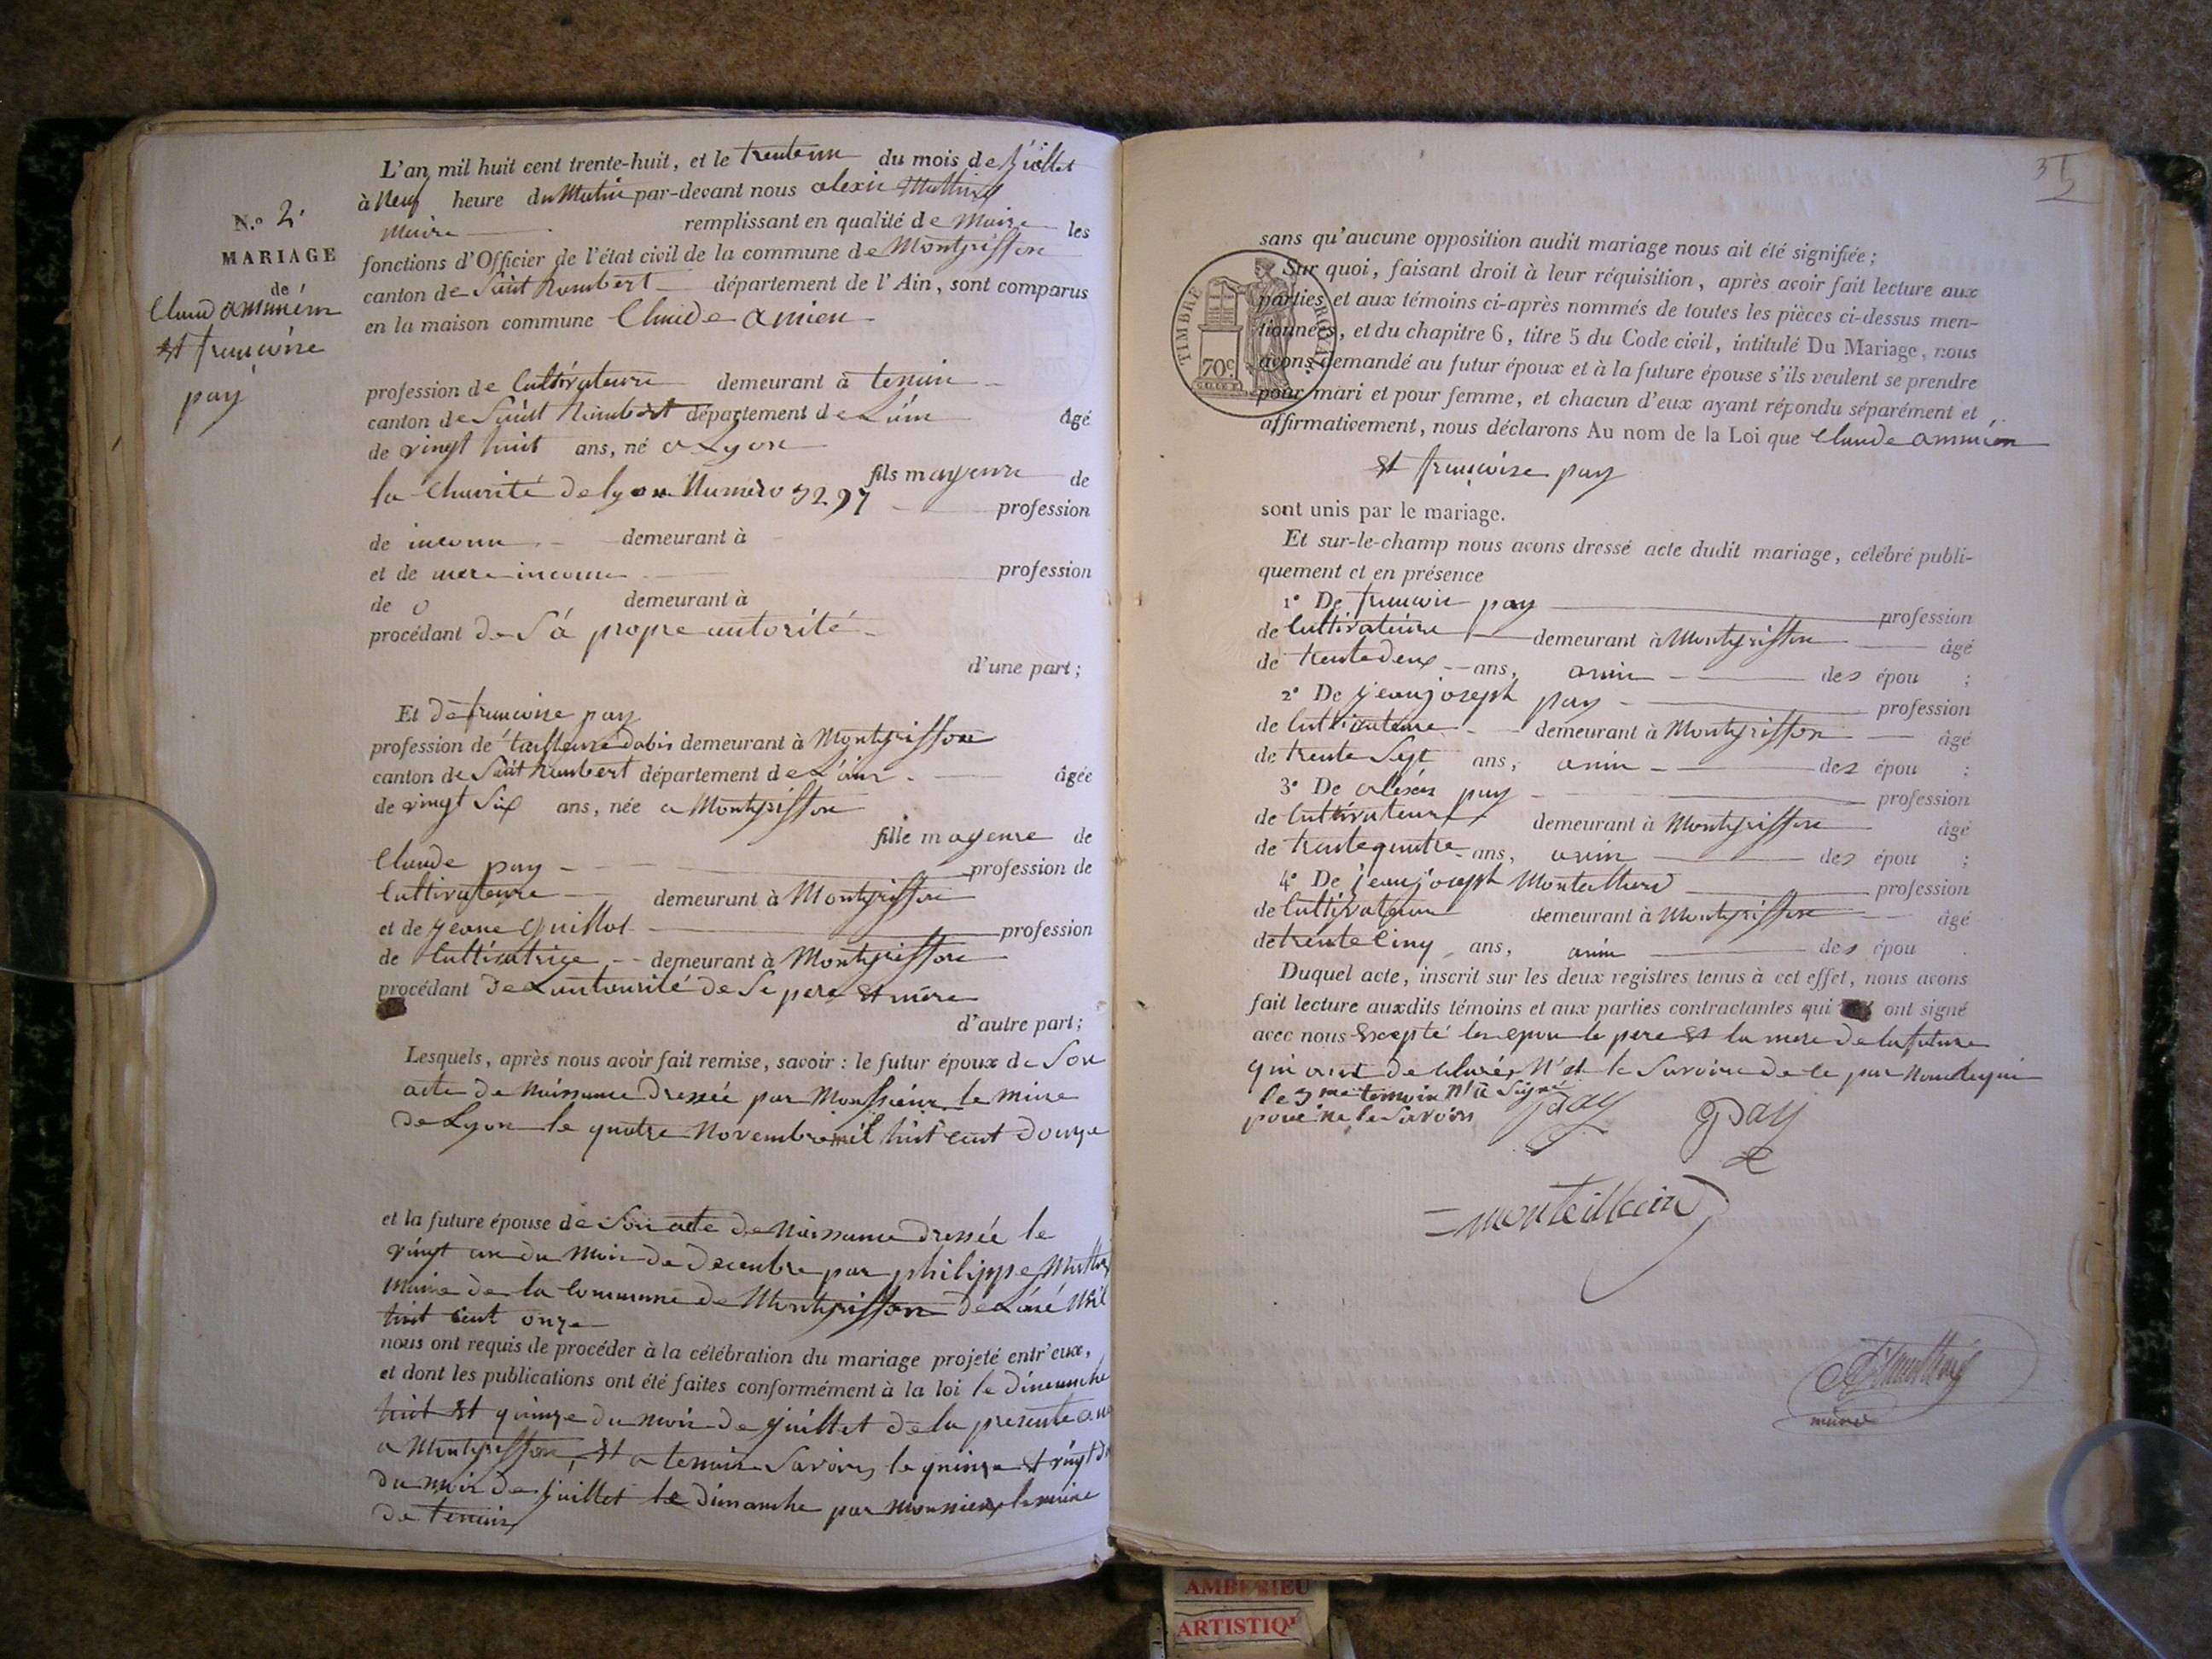 N.o 2.
MARIAGE
de
Claud ammién
et francoise
pay
L'an mil huit cent trente-huit, et le trenteun du mois de juillet
à Neuf heure du Matin par-devant nous alexis
Maire remplissant en qualité de Maire les
fonctions d'Officier de l'état civil de la commune de Montgriffon
canton de Saint Rambert département de l'Ain, sont comparus
en la maison commune Claude amien
profession de Cultivateure demeurant à tenain
canton de Saint Rambert département de L'ain âgé
de vingt huit ans, né a Lyon
fils mageure de
la Charité de lyon Numéro 3297 profession
de inconnu demeurant à
et de mere inconnu profession
de 0 demeurant à
procédant de Sá propre autorité
d'une part;
Et de francoise pay
profession de tailleure dabis demeurant à Montgriffon
canton de Saint Rambert département de L'ain âgée
de vingt Six ans, née a Montgriffon
fille mageure de
Claude pay profession de
Cultivateure demeurant à Montgriffon
et de jeane Guillot profession
de Cultivatrice demeurant à Montgriffon
procédant de Lautourité de Se pere et mére
d'autre part;
Lesquels, après nous avoir fait remise, savoir : le futur époux de Son
acte de Naissance dressée par Monssieur le Maire
de Lyon le quatre Novembre mil huit cent douze
et la future épouse de Son acte de Naissance dressée le
vingt un du Mois de Decembre par philippe
Maire de la Commune de Montgriffon de Lané Mil
huit cent onze
nous ont requis de procéder à la célébration du mariage projeté entr'eux,
et dont les publications ont été faites conformément à la loi le dimanche
huit et quinze du mois de juillet de la presente
a Montgriffon, et a tenain Savoire le quinze et vingt
du mois de juillet le dimanche par monsieux le maire
de tenain
31
2
sans qu'aucune opposition audit mariage nous ait été signifiée;
Sur quoi, faisant droit à leur réquisition, après avoir fait lecture aux
parties et aux témoins ci-après nommés de toutes les pièces ci-dessus men-
tionnées, et du chapitre 6, titre 5 du Code civil, intitulé Du Mariage, nous
avons demandé au futur époux et à la future épouse s'ils veulent se prendre
pour mari et pour femme, et chacun d'eux ayant répondu séparément et
affirmativement, nous déclarons Au nom de la Loi que Claude ammién
et francoise pay
TIMBRE ROYAL
70c
sont unis par le mariage.
Et sur-le-champ nous avons dressé acte dudit mariage, célébré publi-
quement et en présence
1° De francois pay profession
de Cultivateure demeurant à Montgriffon âgé
de trentedeux ans, amin des épou ;
2° De jeanjoseph pay profession
de Cultivateure demeurant à Montgriffon âgé
de trente Sept ans, amin des épou ;
3° De aléxis pay profession
de Cultivateure demeurant à Montgriffon âgé
de trentequatre ans, amin des épou ;
4° De jeanjoseph Monteilhard profession
de Cultivateur demeurant à Montgriffon âgé
de trente Cinq ans, amin des épou .
Duquel acte, inscrit sur les deux registres tenus à cet effet, nous avons
fait lecture auxdits témoins et aux parties contractantes qui ont signé
avec nous Excepté les epou le pere et la mere de la future
qui ont declarée N'et le Savoire de ce par Nous requi
le 3me temoin N'a Signé
poure Ne le Savoire
pay pay
monteillard
maire
AMBERIEU
ARTISTIQU